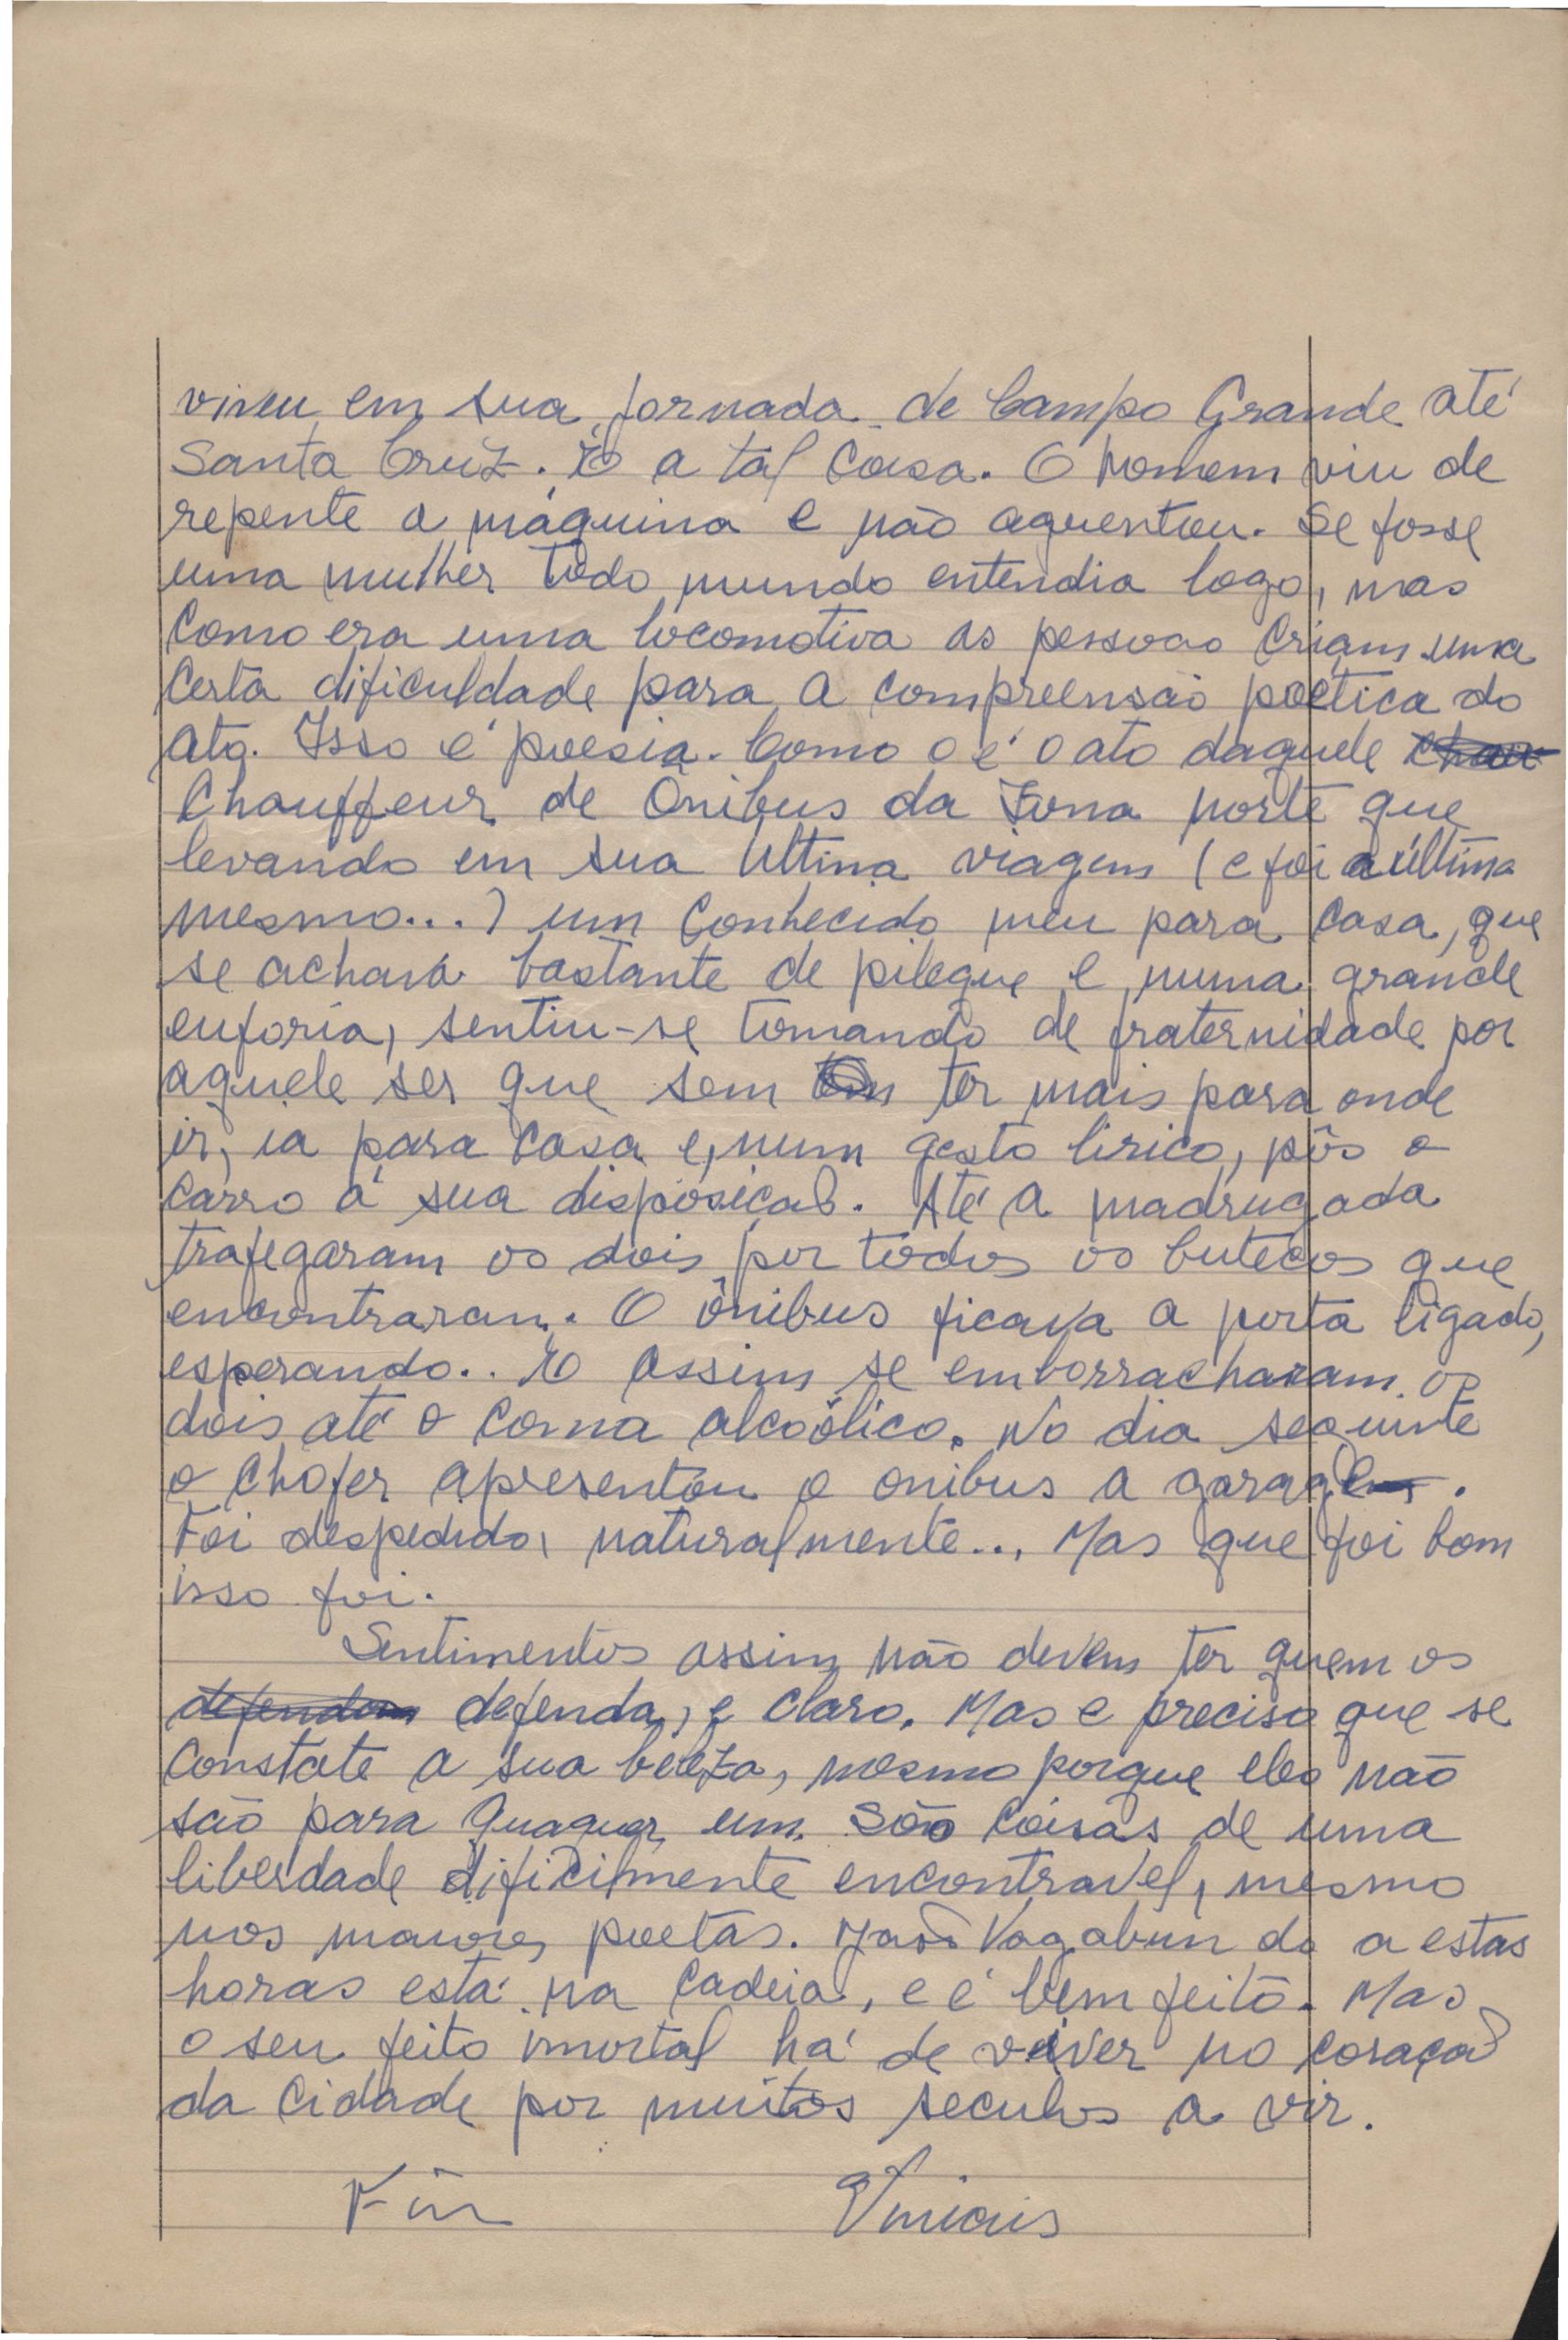 viveu em sua jornada de Campo Grande até
Santa Cruz. É a tal coisa. O homem viu de
repente a máquina e não aguentou. Se fosse
uma mulher todo mundo entendia logo, mas
como era uma locomotiva as pessoas criam uma
certa dificuldade para a compreensão poética do
ato. Isso é poesia. Como o é o ato daquele
Chauffeur de Onibus da Zona norte que
levando em sua ultima viagem (e foi a última
mesmo...) um conhecido meu para casa, que
se achava bastante de pileque e numa grande
euforia, sentiu-se tomando de fraternidade por
aquele ser que sem ter mais para onde
ir, ia para casa e, num gesto lirico, pôs o
carro á sua disposição. Até a madrugada
trafegaram os dois por todos os butecos que
encontraram. O ônibus ficava a porta ligado,
esperando.. E assim se emborracharam os
dois até o coma alcoólico. No dia seguinte
o chofer apresentou o onibus a garagem.
Foi despedido, naturalmente... Mas que foi bom
isso foi.
Sentimentos assim não devem ter quem os
defendam defenda, e claro. Mas e preciso que se
constate a sua beleza, mesmo porque eles não
são para quaquer um. São coisas de uma
liberdade dificilmente encontravel, mesmo
nos maiores poetas. João Vagabundo a estas
horas está na cadeia, e é bem feito. Mas
o seu feito imortal há de viver no coração
da cidade por muitos seculos a vir.
Fim Vinicius